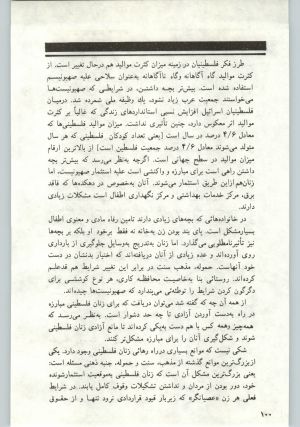 طرز فکر فلسطینیان در زمینه میزان کثرت موالید هم درحال تغییر است. از
کثرت موالید گاه آگاهانه وگاه ناآگاهانه به‌عنوان سلاحی علیه صهیونیسم
استفاده شده است. بیش‌تر بچه داشتن، در شرایطی که صهیونیست‌ها
می‌خواستند جمعیت عرب زیاد نشود، یک وظیفه ملی شمرده شد. درمیان
فلسطینیان اسرائیل افزایش نسبی استانداردهای زندگی که غالباً بر کثرت
موالید اثر معکوس دارد، چنین تأثیری نداشت. میزان موالید فلسطینی‌ها که
۴/۶ درصد در سال است (یعنی تعداد کودکان فلسطینی که هر سال
متولد می‌شوند معادل ۴/۶ درصد جمعیت فلسطین است) از بالاترین ارقام
میزان موالید در سطح جهانی است. اگرچه به‌نظر می‌رسد که بیش‌تر بچه
داشتن راهی است برای مبارزه و واکنشی است علیه استثمار صهیونیست، اما
زنان‌هم‌ازاین طریق استثمار می‌شوند. آنان به‌خصوص در دهکده‌ها که فاقد
برق، مرکز خدمات بهداشتی و مرکز نگهداری اطفال است مشکلات زیادی
دارند.
در خانواده‌هائی که بچه‌های زیادی دارند تامین رفاه مادی و معنوی اطفال
بسیارمشکل است. پای بند بودن زن به‌خانه نه فقط برخود او بلکه بر بچه‌ها
نیز تأثیرنامطلوبی می‌گذارد. اما زنان به‌تدریج به‌وسایل جلوگیری از بارداری
روی آورده‌اند و عده زیادی از آنان دریافته‌اند که اختیار بدنشان در دست
خود آنهاست. حموله، مذهب سنت در برابر این تغییر شرایط هم قدعلم
کرده‌اند. روستائی بنا به‌خاصیت محافظه کاری، هر نوع کوششی برای
دگرگون کردن شرایط را توطئه‌ئی می‌پندارد که صهیونیست‌ها چیده‌اند.
از همه آن چه که گفته شد می‌توان دریافت که برای زنان فلسطینی مبارزه
در راه به‌دست آوردن آزادی تا چه حد دشوار است. به‌نظر می‌رسد که
همه‌چیز وهمه کس با هم دست به‌یکی کرده‌اند تا مانع آزادی زنان فلسطینی
شوند و شکل‌گیری آنان را برای مبارزه مشکل‌تر کنند.
شکی نیست که موانع بسیاری درراه رهائی زنان فلسطینی وجود دارد. یکی
ازبزرگ‌ترین موانع گذشته از مذهب، سنت و حموله، جنبه ذهنی مسئله است.
یعنی بزرگ‌ترین مشکل آن است که زنان فلسطینی به‌موقعیت استثمارشونده
خود، دور بودن از مردان و نداشتن تشکیلات وقوف کامل یابند. در شرایط
فعلی هر زن «عصیانگر» که زیربار قیود قراردادی نرود تنهـا و از حقوق
۱۰۰